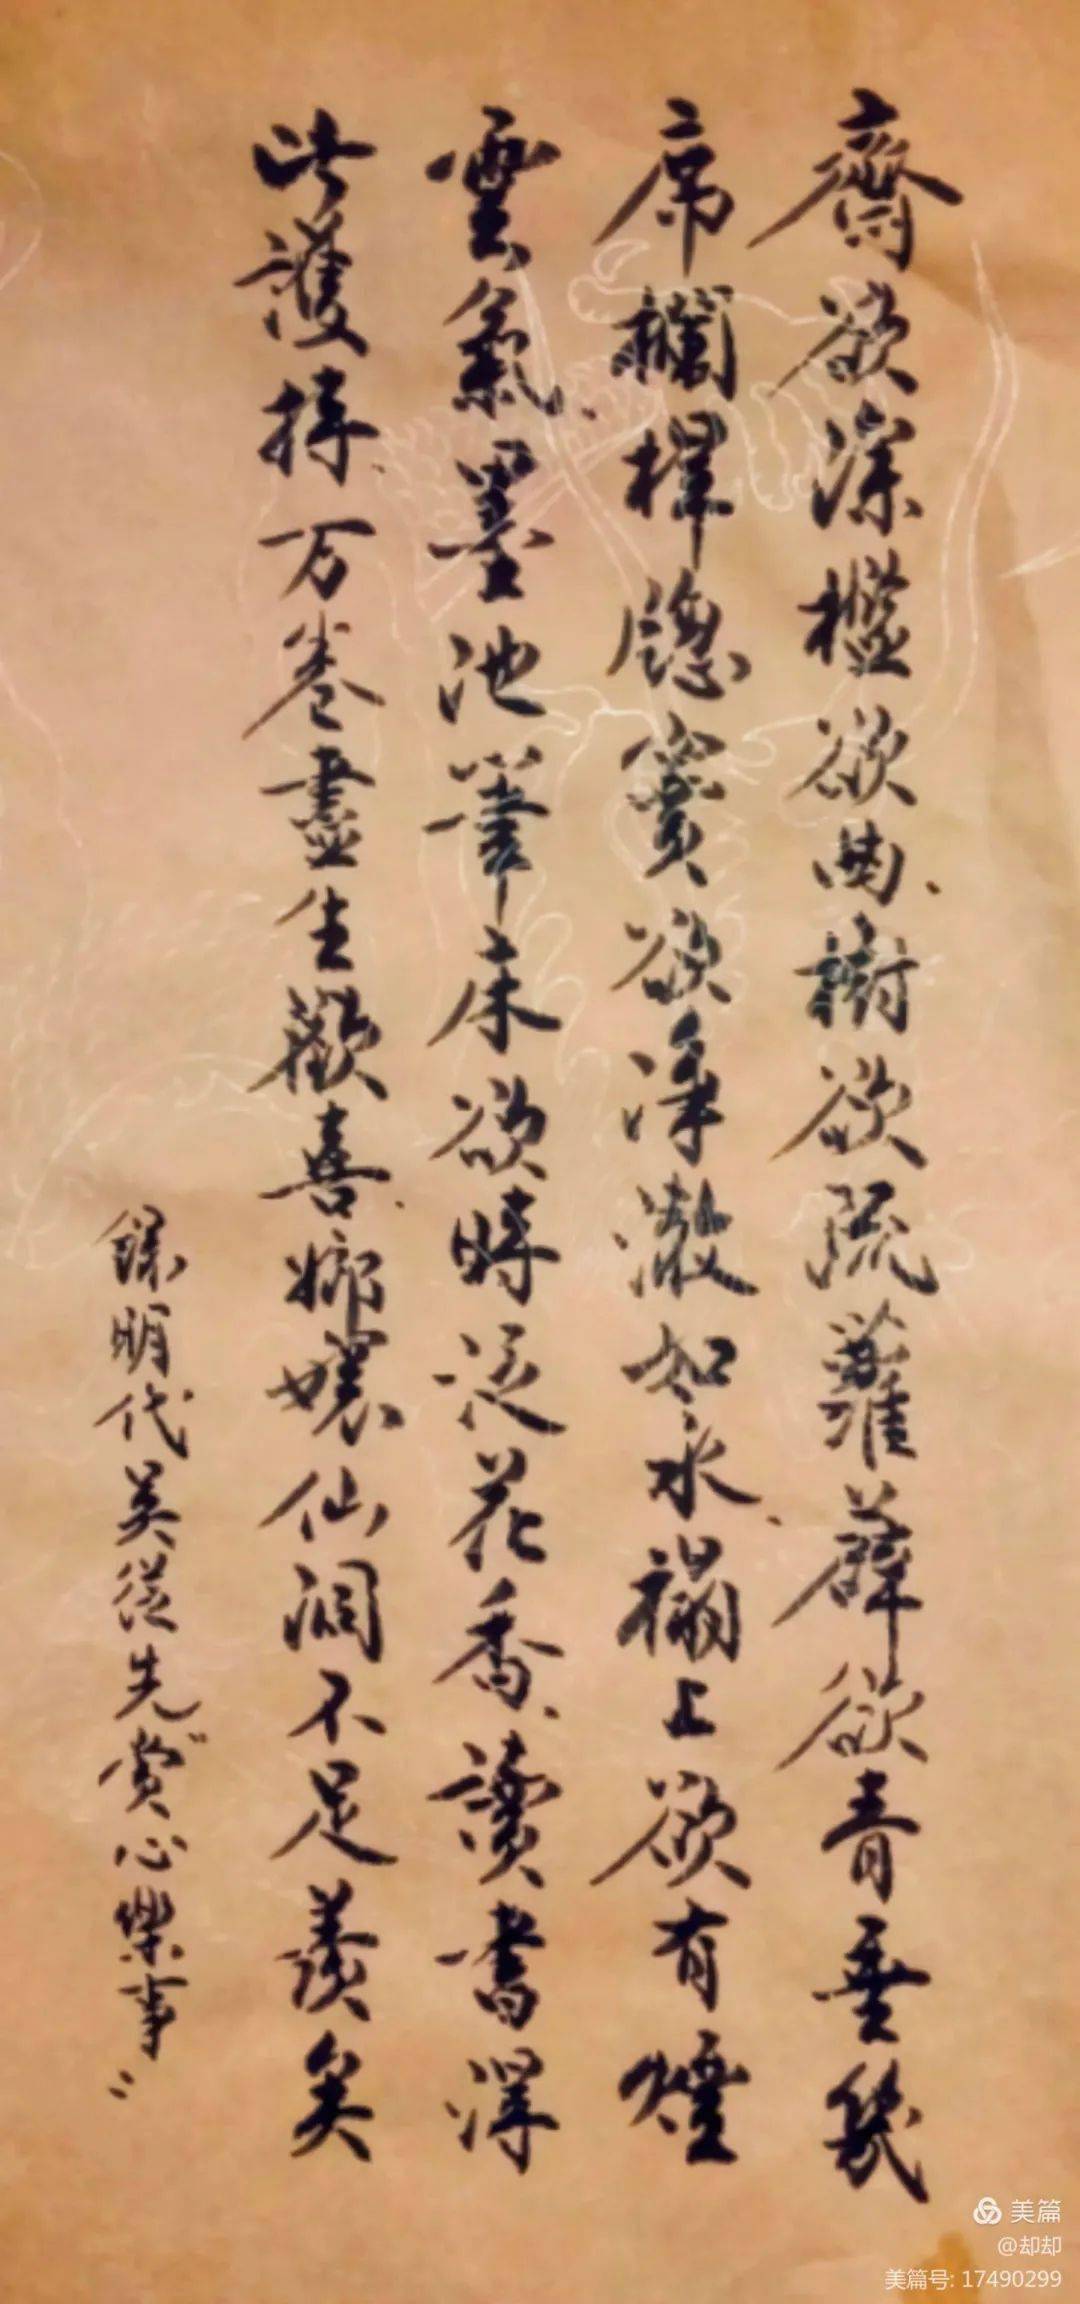 齋欲深檻欲曲樹欲疏蘿薜欲青垂幾
席欄杆窗竇欲淨澈如水榻上欲有煙
雲氣墨池筆床欲時泛花香讀書得
此護持万卷盡生歡喜嫏嬛仙洞不足羨矣
錄明代吴從先賞心樂事
美篇
@却却
美篇号: 17490299